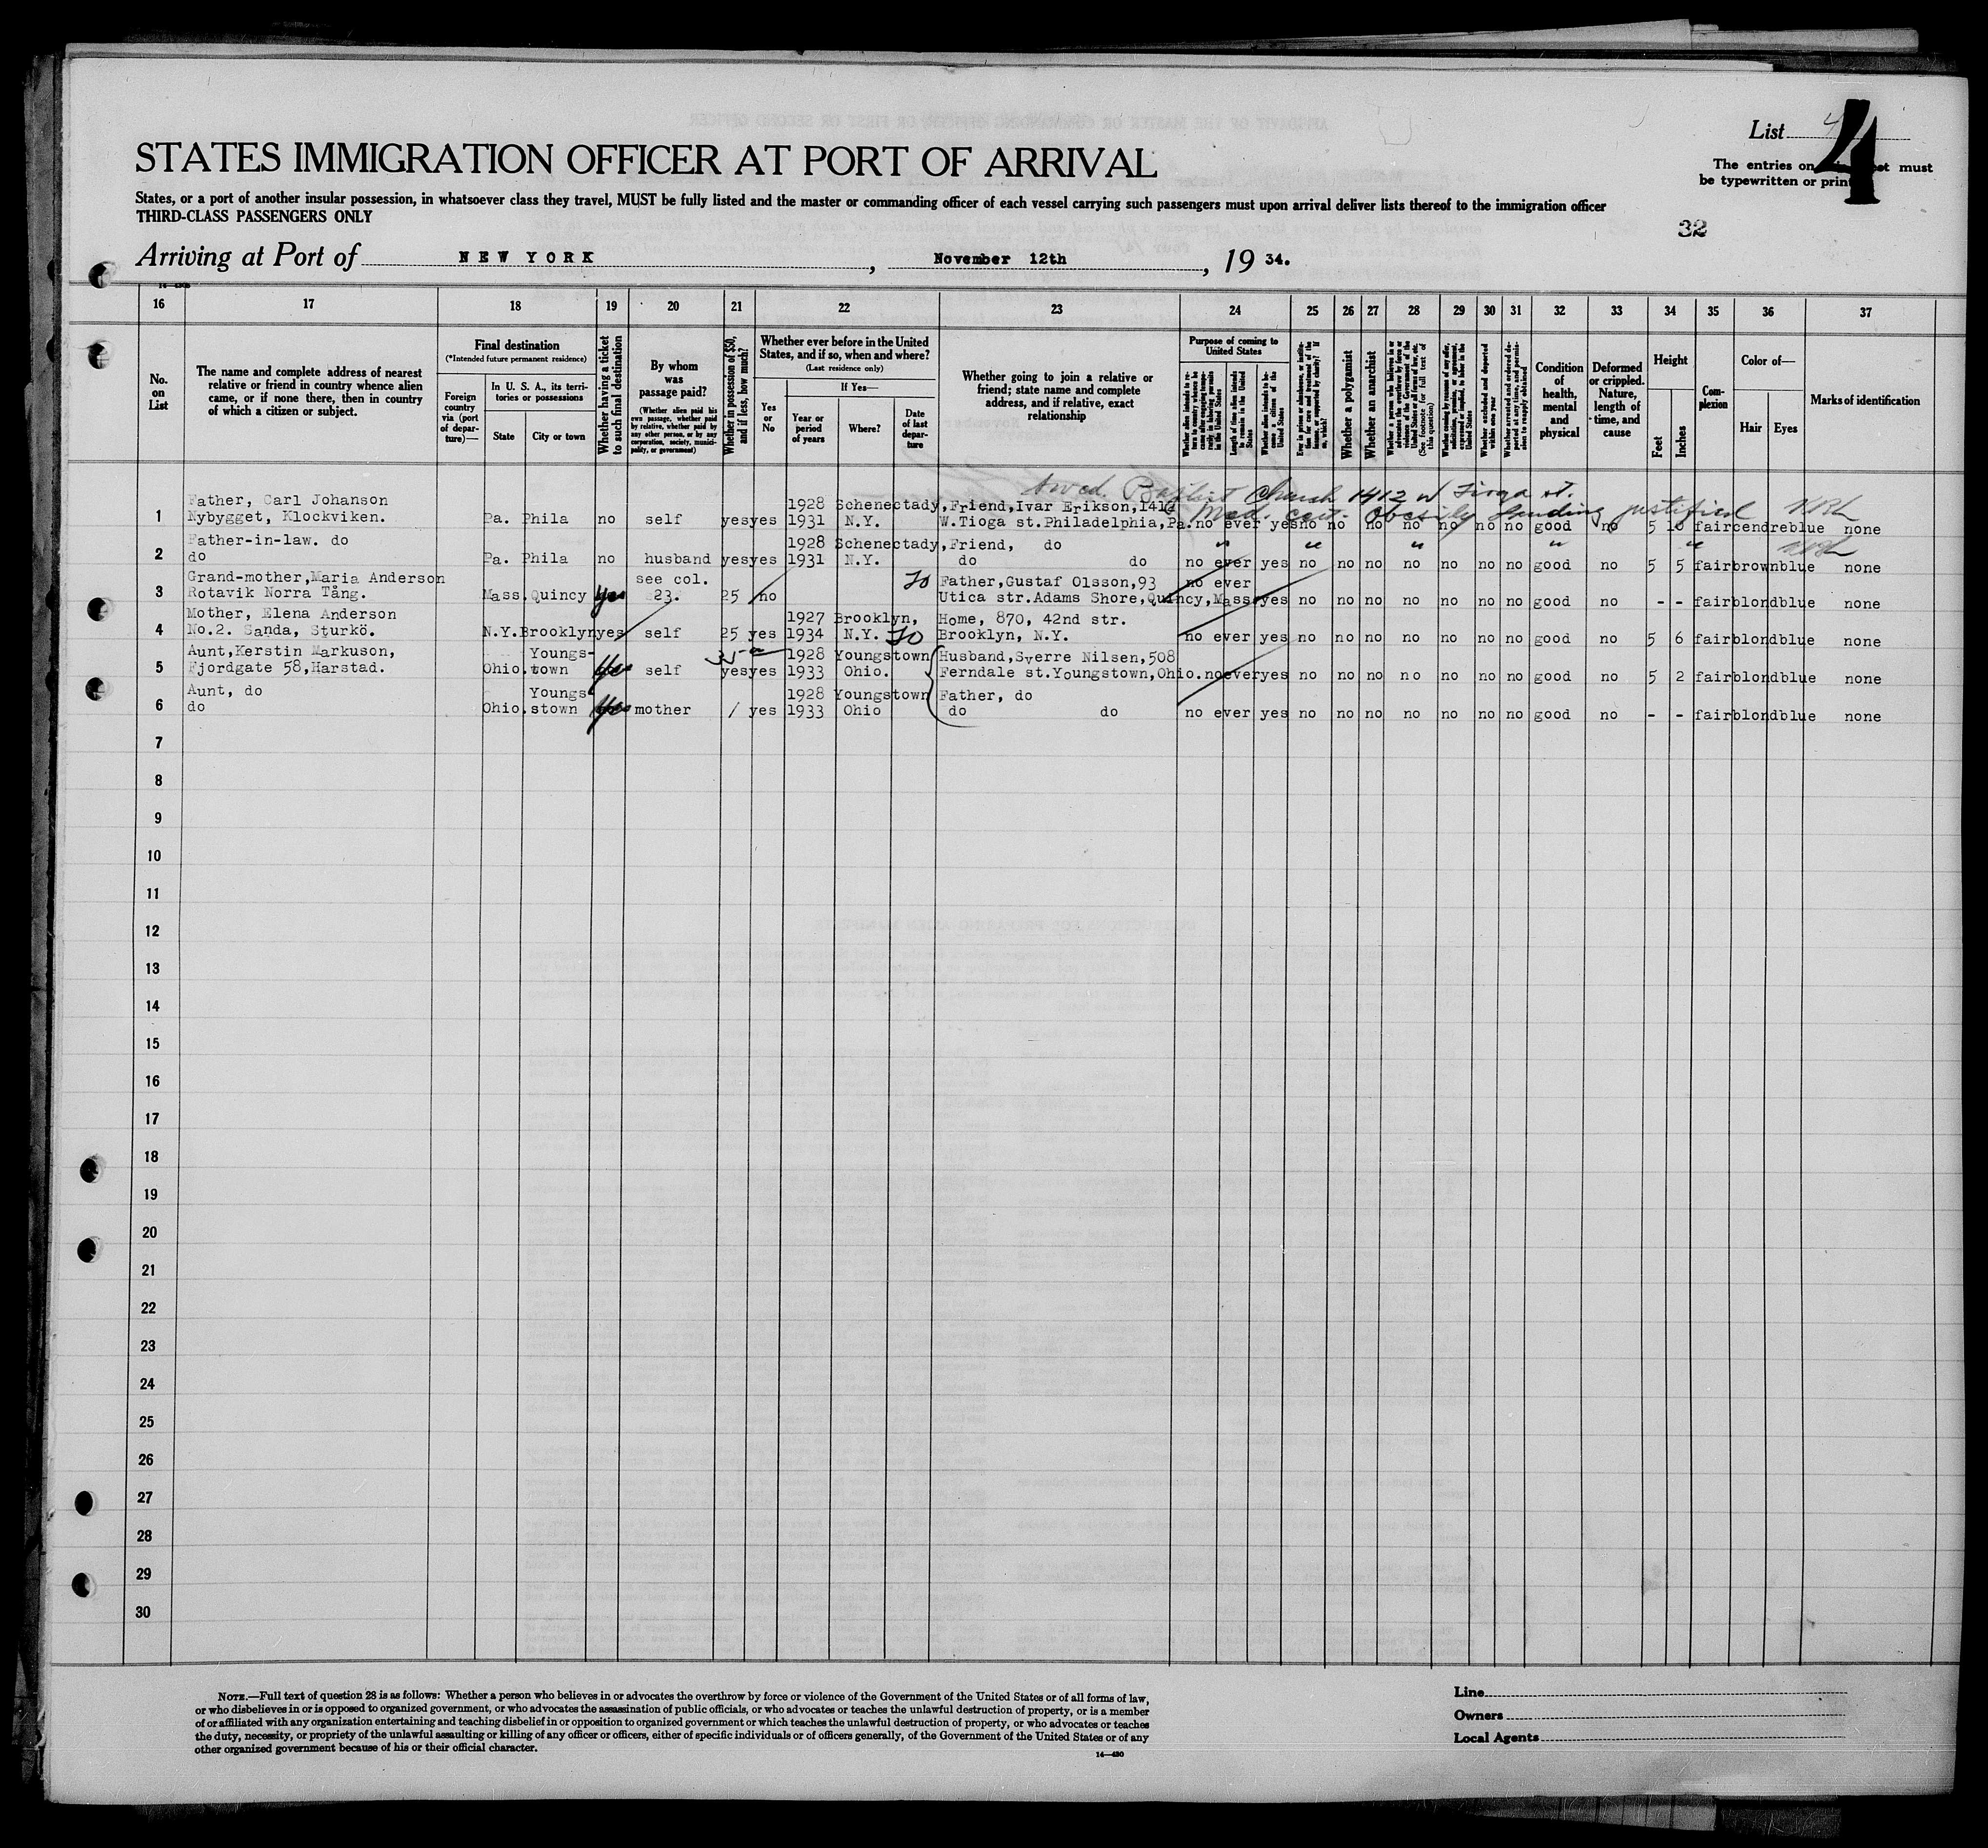 List 4
4
STATES IMMIGRATION OFFICER AT PORT OF ARRIVAL
The entries on must
be typewritten or
States, or a port of another insular possession, in whatsoever class they travel, MUST be fully listed and the master or commanding officer of each vessel carrying such passengers must upon arrival deliver lists thereof to the immigration officer
THIRD-CLASS PASSENGERS ONLY
32
Arriving at Port of NEW YORK, November 12th, 19 34.
16 17 18 19 20 21 22 23 24 25 26 27 28 29 30 31 32 33 34 35 36 37
No. on List
The name and complete address of nearest relative or friend in country whence alien came, or if none there, then in country of which a citizen or subject.
Final destination
(*Intended future permanent residence)
Foreign country via (port of departure)—
In U. S. A., its territories or possessions
State
City or town
Whether having a ticket to such final destination
By whom was passage paid?
(Whether alien paid his own passage, whether paid by relative, whether paid by any other person, or by any corporation, society, municipality, or government)
Whether in possession of $50, and if less, how much?
Whether ever before in the United States, and if so, when and where?
(Last residence only)
Yes or No
If Yes—
Year or period of years
Where?
Date of last departure
Whether going to join a relative or friend; state name and complete address, and if relative, exact relationship
Purpose of coming to United States
Length of time alien intends to remain in the United States
Whether alien intends to become a citizen of the United States
Whether a polygamist
Whether an anarchist
(See footnote for full text of this question)
Whether excluded and deported within one year
Condition of health, mental and physical
Deformed or crippled. Nature, length of time, and cause
Height
Feet
Inches
Complexion
Color of—
Hair
Eyes
Marks of identification
Swed. Baptist Church 1412 W Tioga st.
Med. cert. Obesity landing justified
Father, Carl Johanson 1928 Schenectady, Friend, Ivar Erikson, 141
1 Nybygget, Klockviken. Pa. Phila no self yes yes 1931 N.Y. W.Tioga st.Philadelphia,Pa. no ever yes no no no no no no no good no 5 10 fair cendre blue none
Father-in-law. do 1928 Schenectady, Friend, do " " " " "
2 do Pa. Phila no husband yes yes 1931 N.Y. do do no ever yes no no no no no no no good no 5 5 fair brown blue none
Grand-mother, Maria Anderson see col. Father, Gustaf Olsson, 93 no ever
3 Rotavik Norra Tång. Mass. Quincy yes 23. 25 no Utica str. Adams Shore, Quincy, Mass. yes no no no no no no no good no - - fair blond blue none
Mother, Elena Anderson 1927 Brooklyn, Home, 870, 42nd str.
4 No.2. Sanda, Sturkö. N.Y. Brooklyn yes self 25 yes 1934 N.Y. Brooklyn, N.Y. no ever yes no no no no no no no good no 5 6 fair blond blue none
Aunt, Kerstin Markuson, Youngs- 35 1928 Youngstown Husband, Sverre Nilsen, 508
5 Fjordgate 58, Harstad. Ohio. town yes self yes yes 1933 Ohio. Ferndale st. Youngstown, Ohio. no ever yes no no no no no no no good no 5 2 fair blond blue none
Aunt, do Youngs 1928 Youngstown Father, do
6 do Ohio. stown yes mother / yes 1933 Ohio do do no ever yes no no no no no no no good no - - fair blond blue none
7
8
9
10
11
12
13
14
15
16
17
18
19
20
21
22
23
24
25
26
27
28
29
30
NOTE.—Full text of question 28 is as follows: Whether a person who believes in or advocates the overthrow by force or violence of the Government of the United States or of all forms of law,
or who disbelieves in or is opposed to organized government, or who advocates the assassination of public officials, or who advocates or teaches the unlawful destruction of property, or is a member
of or affiliated with any organization entertaining and teaching disbelief in or opposition to organized government or which teaches the unlawful destruction of property, or who advocates or teaches
the duty, necessity, or propriety of the unlawful assaulting or killing of any officer or officers, either of specific individuals or of officers generally, of the Government of the United States or of any
other organized government because of his or their official character.
14—430
Line
Owners
Local Agents